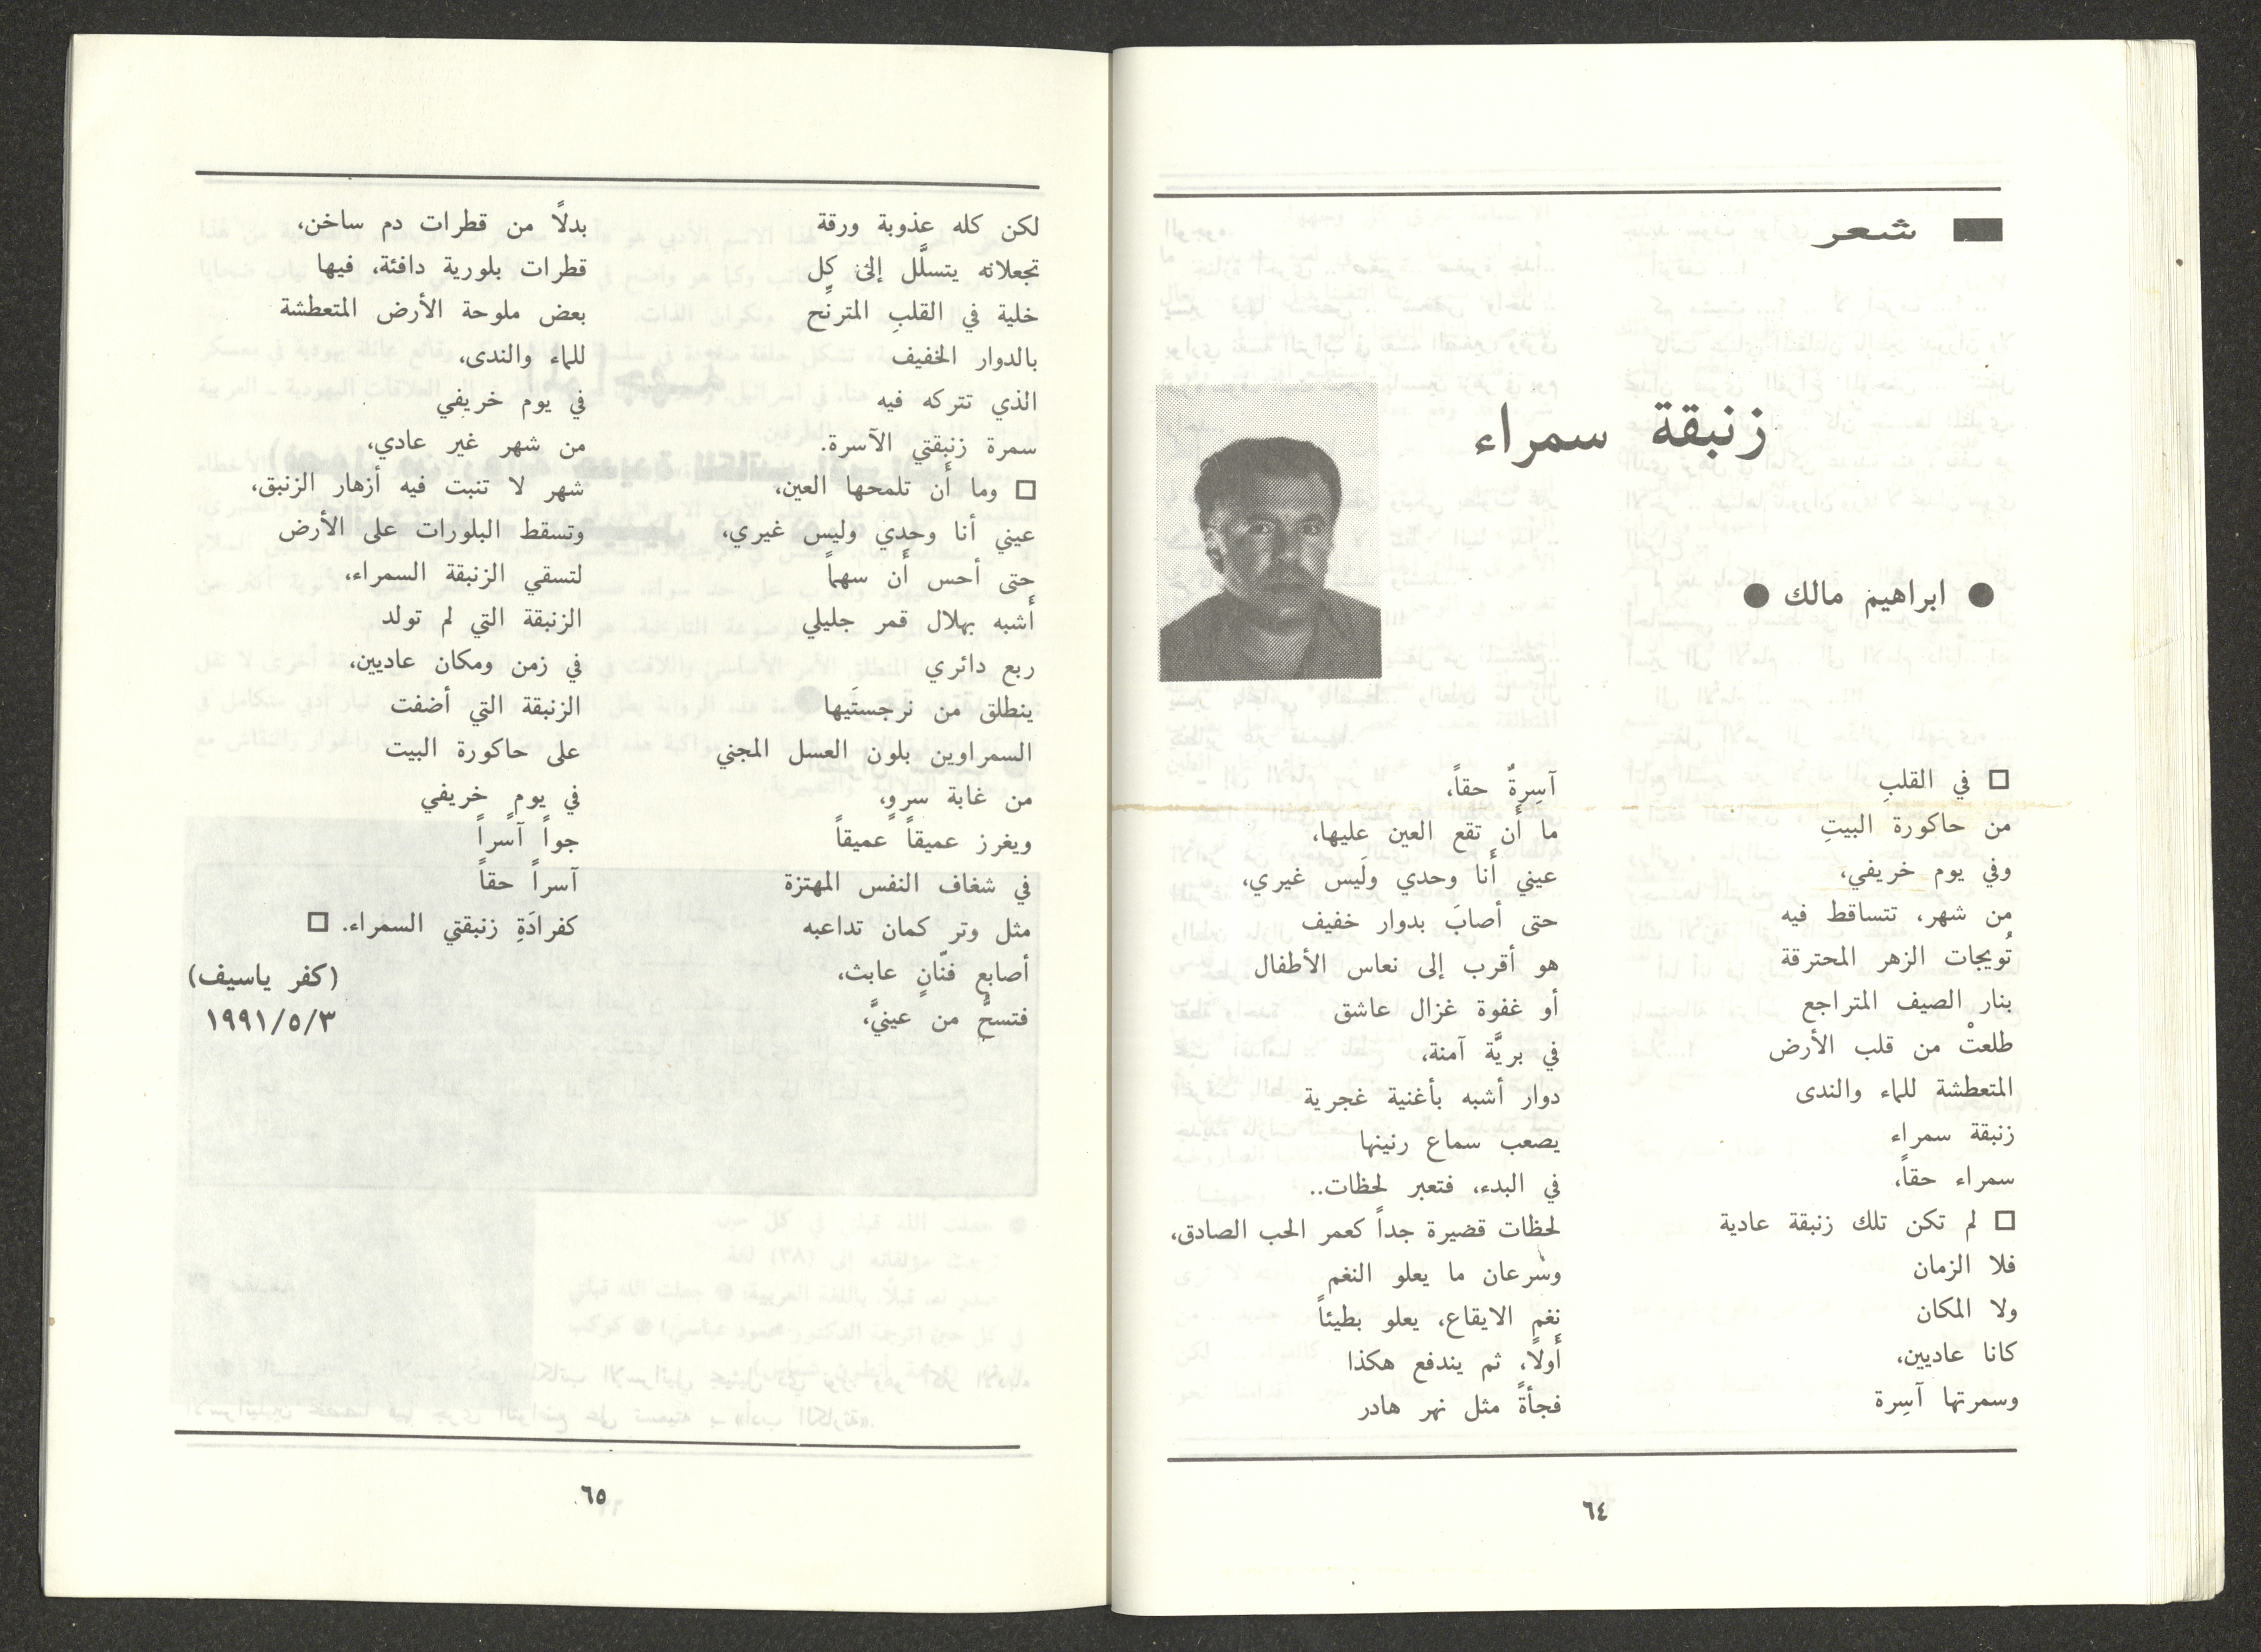 شعر
زنبقة سمراء
● ابراهيم مالك ●
□ في القلبِ
من حاكورة البيتِ
وفي يوم خريفي،
من شهر، تتساقط فيه
تُويجات الزهر المحترقة
بنار الصيف المتراجع
طلعتْ من قلب الأرض
المتعطشة للماء والندى
زنبقة سمراء
سمراء حقاً،
□ لم تكن تلك زنبقة عادية
فلا الزمان
ولا المكان
كانا عاديين،
وسمرتها آسِرة
آسِرةٌ حقاً،
ما أَن تقع العين عليها،
عيني أَنا وحدي ولَيس غيري،
حتى أصابَ بدوار خفيف
هو أقرب إلى نعاس الأطفال
أو غفوة غزال عاشق
في بريَّة آمنة،
دوار أشبه بأغنية غجرية
يصعب سماع رنينها
في البدء، فتعبر لحظات..
لحظات قضيرة جداً كعمر الحب الصادق،
وسرعان ما يعلو النغم
نغم الايقاع، يعلو بطيئاً
أَولاً، ثم يندفع هكذا
فجأةً مثل نهر هادر
٦٤
لكن كله عذوبة ورقة
تجعلانه يتسلَّل إلى كل
خلية في القلبِ المترنِّح
بالدوار الخفيف
الذي تتركه فيه
سمرة زنبقتي الآسرة.
□ وما أَن تلمحها العين،
عيني أنا وحدي وليس غيري،
حتى أحس أَن سهماً
أَشبه بهلال قمر جليلي
ربع دائري
ينطلق من نرجستَيها
السمراوين بلون العسل المجني
من غابة سروٍ،
ويغرز عميقاً عميقاً
في شغاف النفس المهتزة
مثل وتر كمان تداعبه
أصابع فنّانٍ عابث،
فتسحُّ من عينيَّ،
بدلاً من قطرات دم ساخن،
قطرات بلورية دافئة، فيها
بعض ملوحة الأرض المتعطشة
للماء والندى،
في يوم خريفي
من شهر غير عادي،
شهر لا تنبت فيه أزهار الزنبق،
وتسقط البلورات على الأرض
لتسقي الزنبقة السمراء،
الزنبقة التي لم تولد
في زمن ومكان عاديين،
الزنبقة التي أضفت
على حاكورة البيت
في يومٍ خريفي
جواً آسراً
آسراً حقاً
كفرادَةِ زنبقتي السمراء. □
(كفر ياسيف)
١٩٩١/٥/٣
٦٥